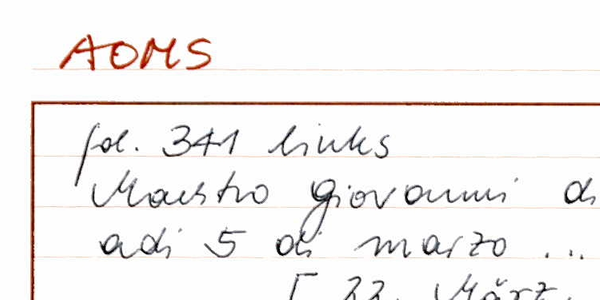 AOMS
fol. 341 links
Maestro giovanni di
adi 5 di marzo ...
[ 22. März.